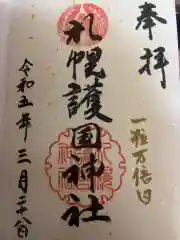 奉拝
一粒万倍日
札幌護国神社
令和五年三月二十八日